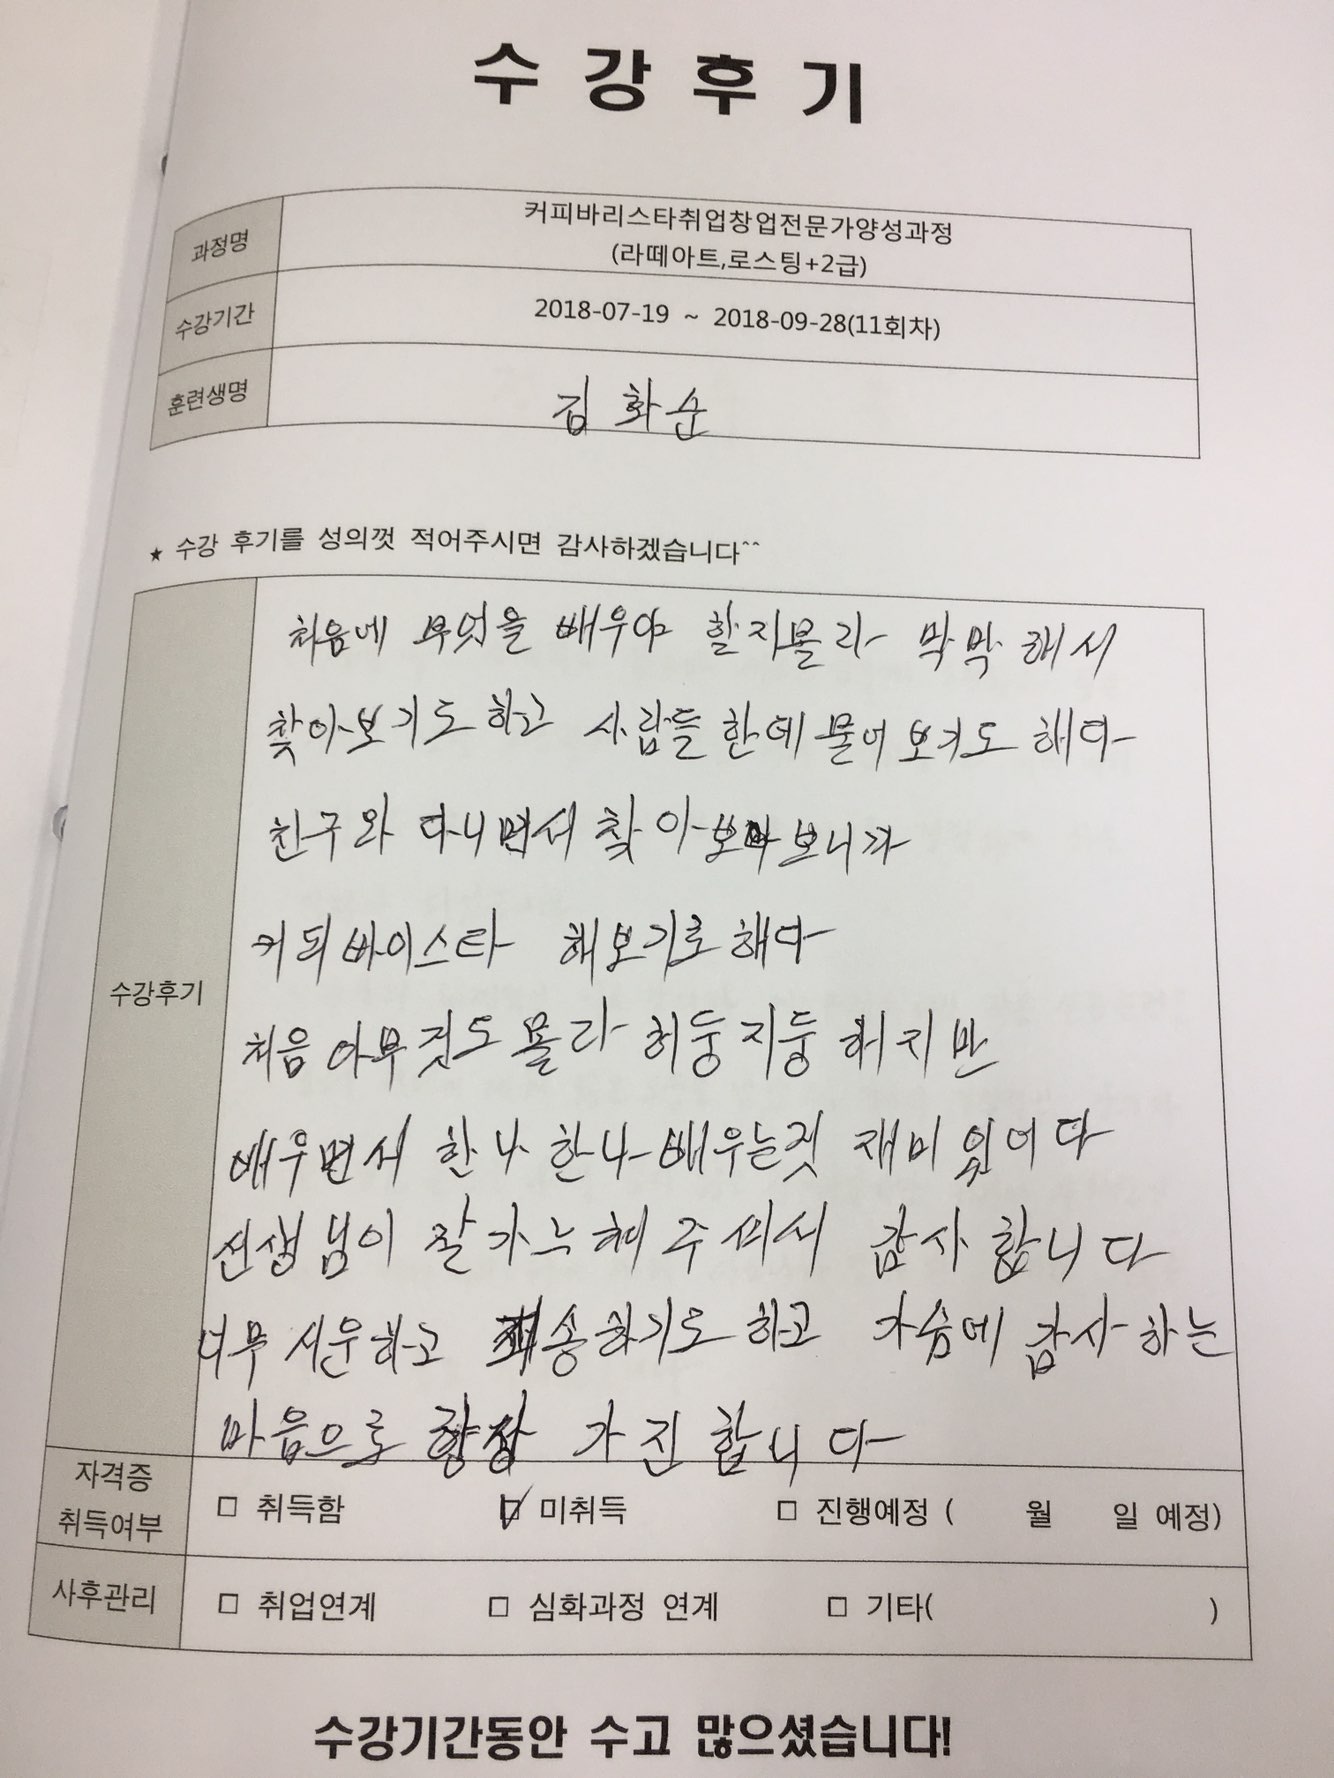 수강후기
과정명
커피바리스타취업창업전문가양성과정
(라떼아트,로스팅+2급)
수강기간
2018-07-19 ~ 2018-09-28(11회차)
훈련생명
김화순
★ 수강 후기를 성의껏 적어주시면 감사하겠습니다^^
수강후기
처음에 무엇을 배우야 할지몰라 막막해서
찾아보기도하고 사람들한데물어보기도 해다
친구와 다니면서 찾아보니까
커피바이스타 해보기로해다
처음 아무것도 몰라 허둥지둥
배우면서 한나 한나 배우는것 재미있어다
선생님이 잘 감사합니다
너무 서운하고 송하기도 하고 가슴에 감사하는
마음으로 항상 가진합니다
자격증
취득여부
□ 취득함 ☑ 미취득 □ 진행예정 ( 월 일 예정)
사후관리
□ 취업연계 □ 심화과정 연계 □ 기타( )
수강기간동안 수고 많으셨습니다!